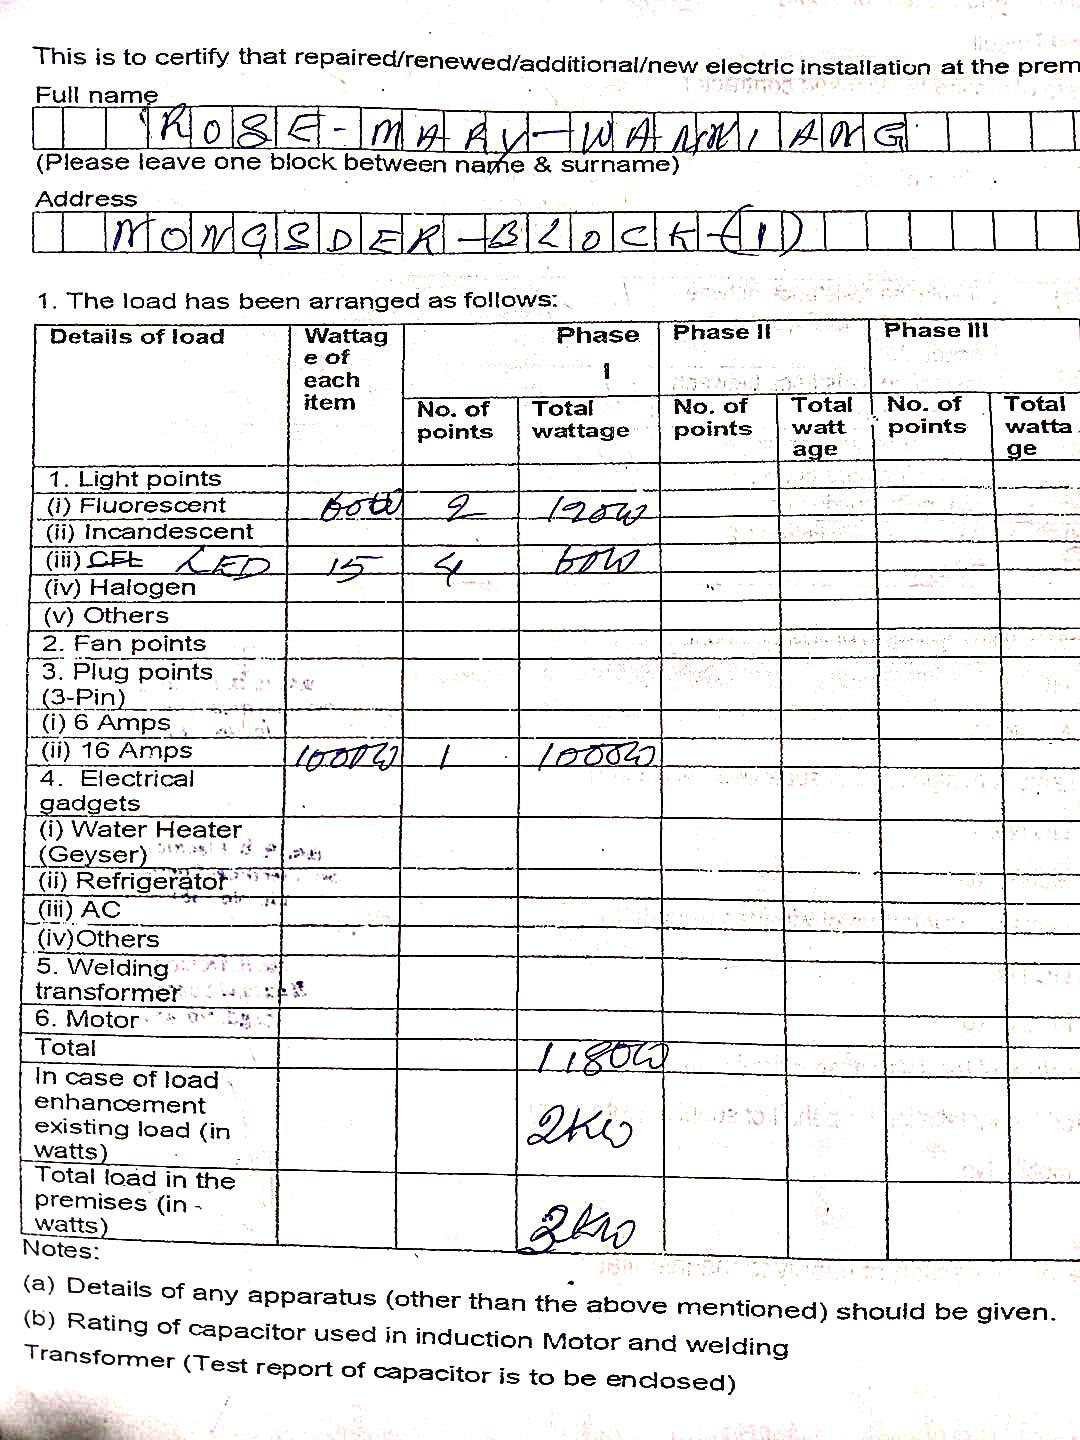 This is to certify that repaired/renewed/additional/new electric installation at the prem
Full name
ROSE-MARY-WANNIANG
(Please leave one block between name & surname)
Address
NONGSDER-BLOCK-(1)
1. The load has been arranged as follows:
Details of load Wattag e of each item Phase I Phase II Phase III
No. of points Total wattage No. of points Total watt age No. of points Total watta ge
1. Light points
(i) Fluorescent 60W 2 120W
(ii) Incandescent
(iii) CFL LED 15 4 60W
(iv) Halogen
(v) Others
2. Fan points
3. Plug points
(3-Pin)
(i) 6 Amps
(ii) 16 Amps 1000W 1 1000W
4. Electrical
gadgets
(i) Water Heater
(Geyser)
(ii) Refrigerator
(iii) AC
(iv)Others
5. Welding
transformer
6. Motor
Total 1180W
In case of load
enhancement
existing load (in 2KW
watts)
Total load in the
premises (in -
watts) 2KW
Notes:
(a) Details of any apparatus (other than the above mentioned) should be given.
(b) Rating of capacitor used in induction Motor and welding
Transformer (Test report of capacitor is to be enclosed)